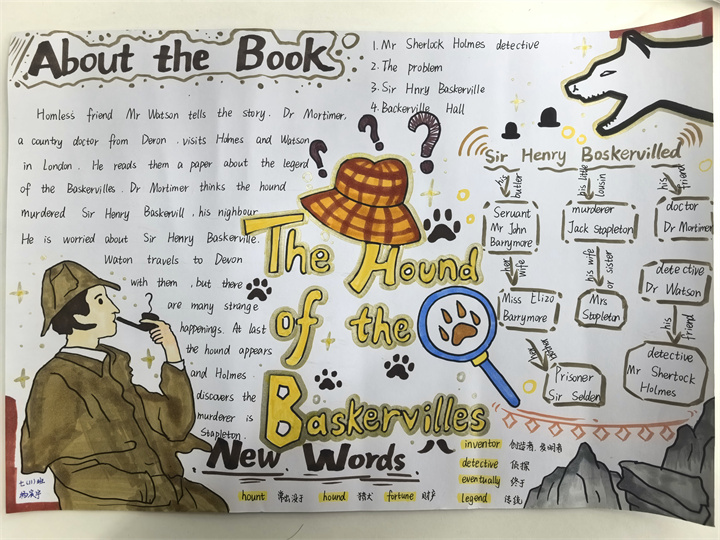 About the Book
1. Mr Sherlock Holmes detective
2. The problem
3. Sir Hnry Baskerville
4. Backerville Hall
Homless friend Mr Watson tells the story. Dr Mortimer,
a country doctor from Deron, visits Holmes and Watson
in London. He reads them a paper about the legend
of the Baskervilles. Dr Mortimer thinks the hound
murdered Sir Henry Baskervill, his neighbour.
He is worried about Sir Henry Baskerville.
Waton travels to Devon
with them, but there
are many strange
happenings. At last
the hound appears
and Holmes
discovers the
murderer is
Stapleton.
The Hound
of the
Baskervilles
Sir Henry Boskervilled
his butler
his little cousin
his friend
Seruant
Mr John
Barrymore
murderer
Jack Stapleton
doctor
Dr Mortimer
her wife
his wife or sister
Miss Elizo
Barrymore
Mrs
Stapleton
detective
Dr Watson
his friend
Prisoner
Sir Selden
detective
Mr Shertock
Holmes
New Words
inventor 创造者、发明者
detective 侦探
eventually 终于
legend 传统
hount 常出没于 hound 猎犬 fortune 财产
七(1)班